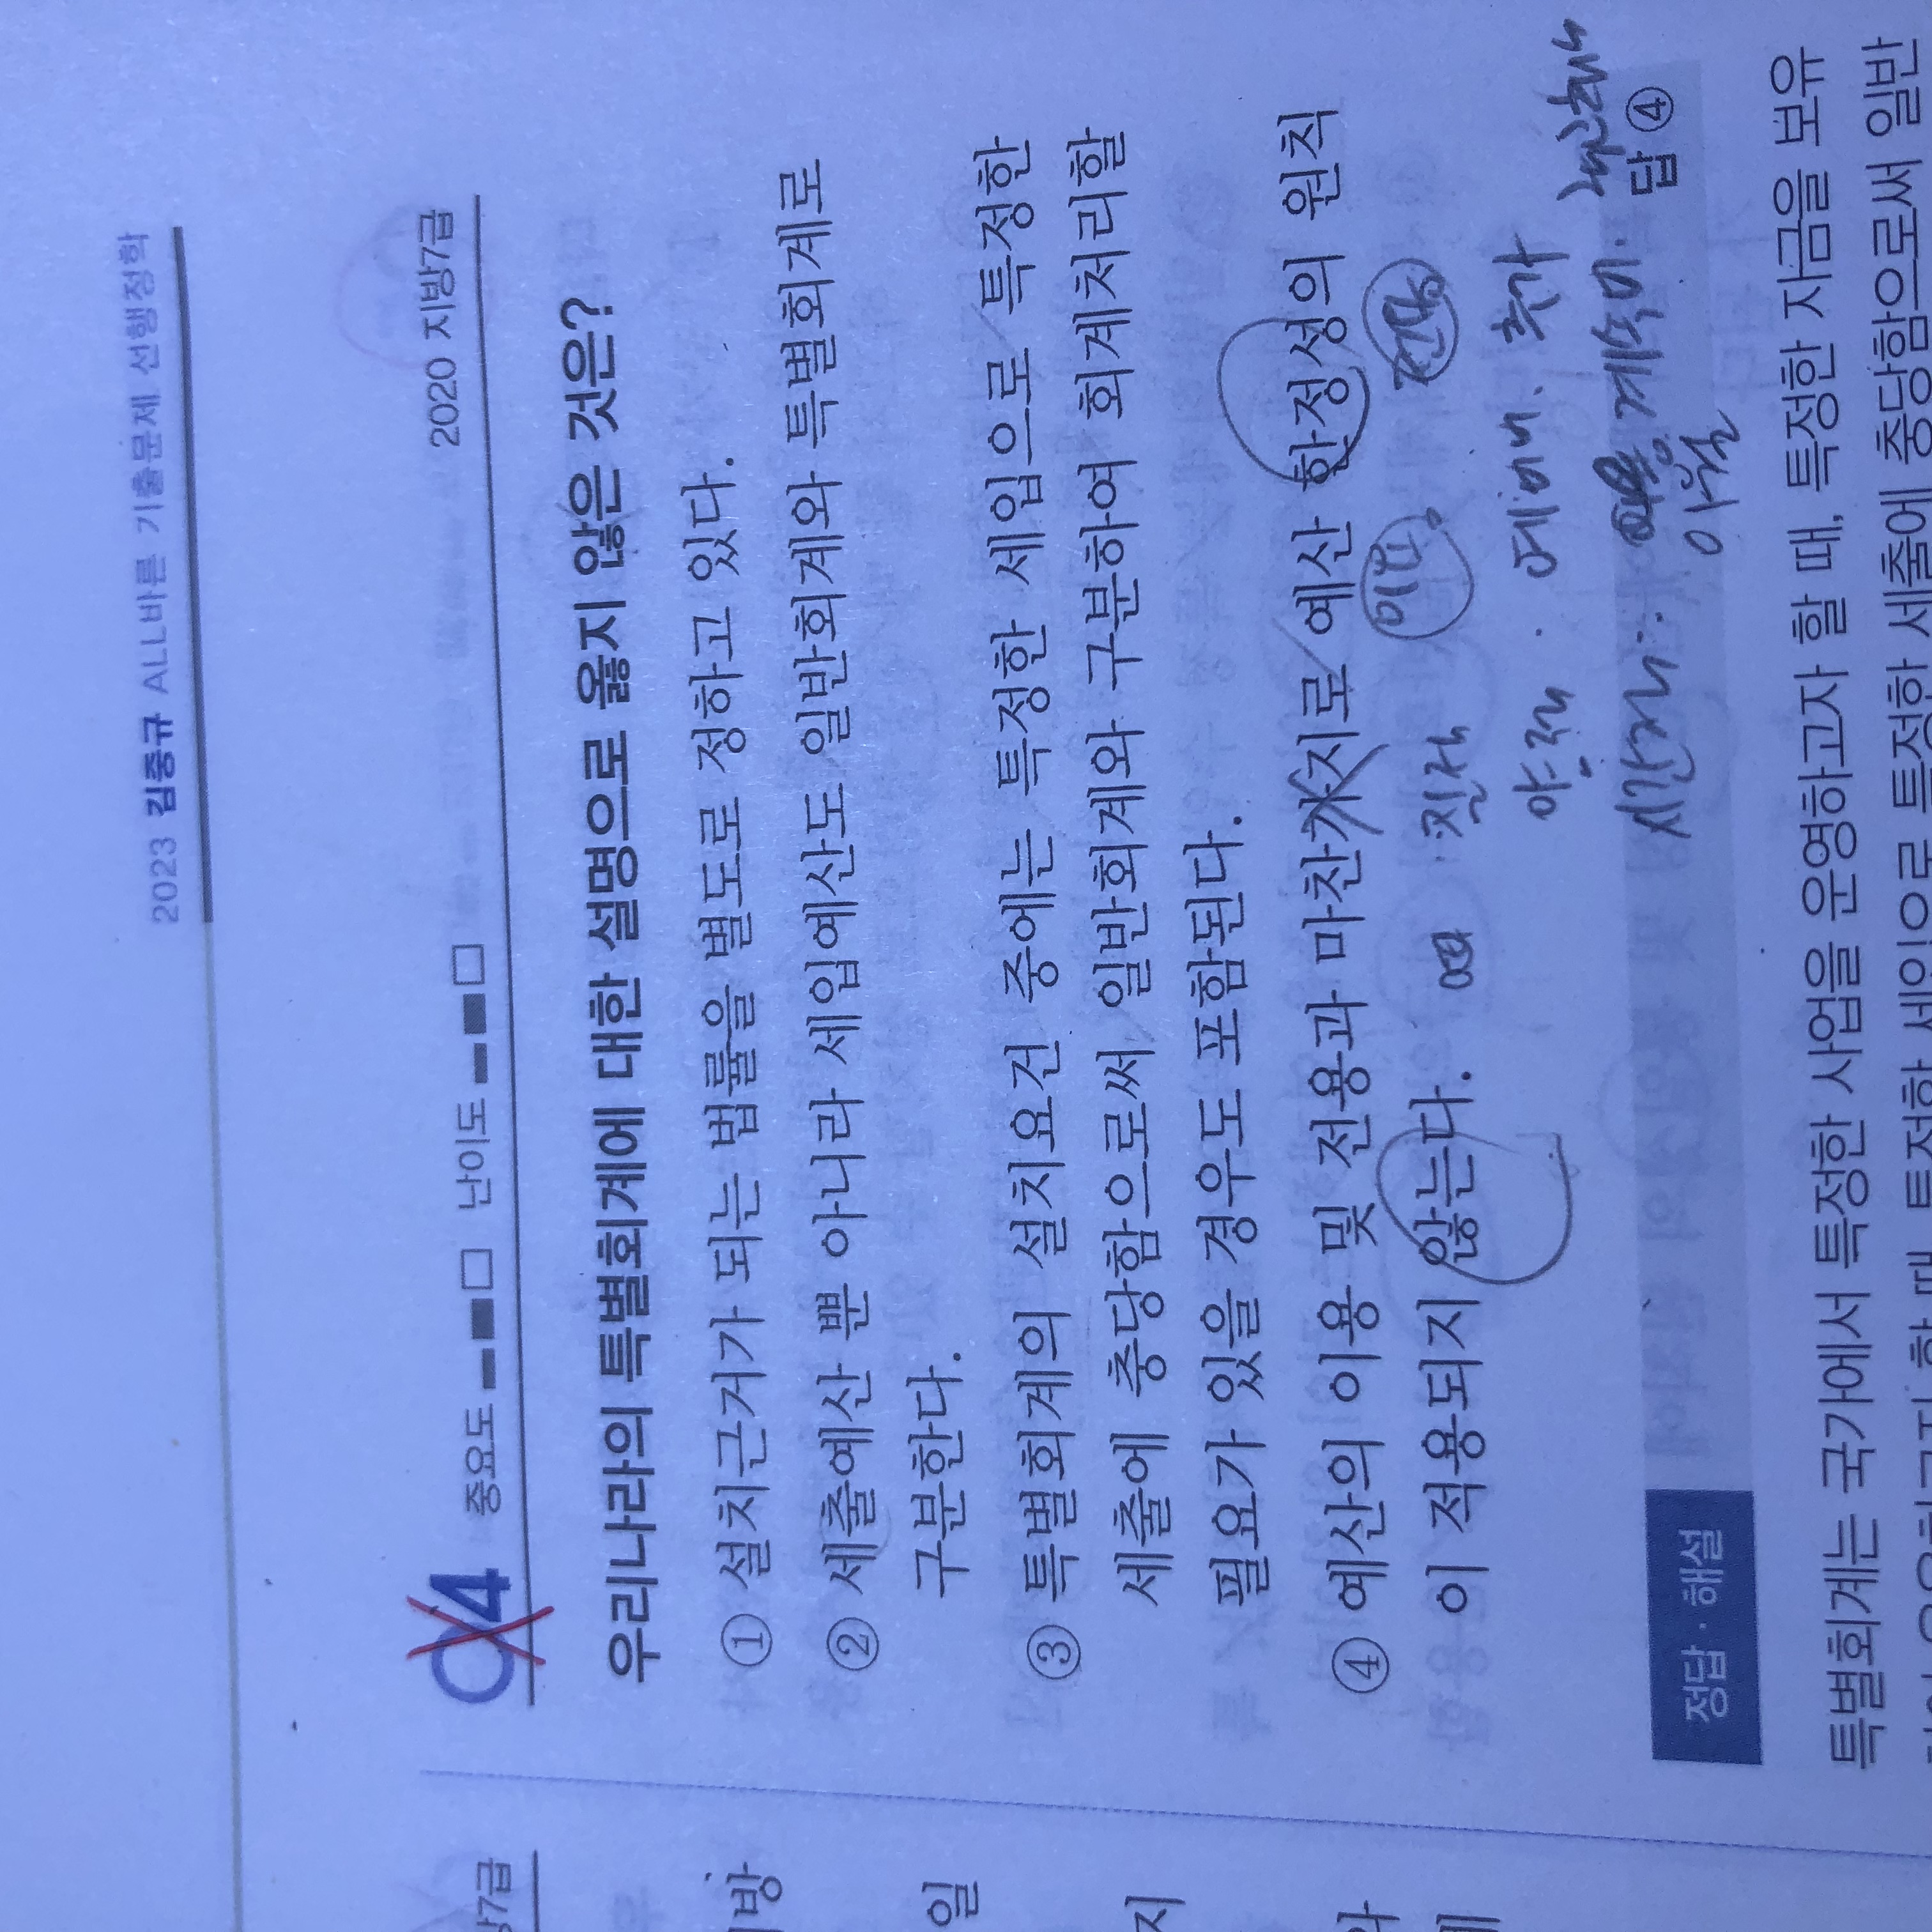 2023 김중규 ALL바른 기출문제 선행정학
04 중요도 난이도 2020 지방7급
우리나라의 특별회계에 대한 설명으로 옳지 않은 것은?
① 설치근거가 되는 법률을 별도로 정하고 있다.
② 세출예산 뿐 아니라 세입예산도 일반회계와 특별회계로
구분한다.
③ 특별회계의 설치요건 중에는 특정한 세입으로 특정한
세출에 충당함으로써 일반회계와 구분하여 회계처리할
필요가 있을 경우도 포함된다.
④ 예산의 이용 및 전용과 마찬가지로 예산 한정성의 원칙
이 적용되지 않는다.
질적
이용
전용
양적
예비
추가
시간적
계속비
이월
정답·해설
답 ④
특별회계는 국가에서 특정한 사업을 운영하고자 할 때, 특정한 자금을 보유
특정한 세입으로 특정한 세출에 충당함으로써 일반
7급
방
일
지